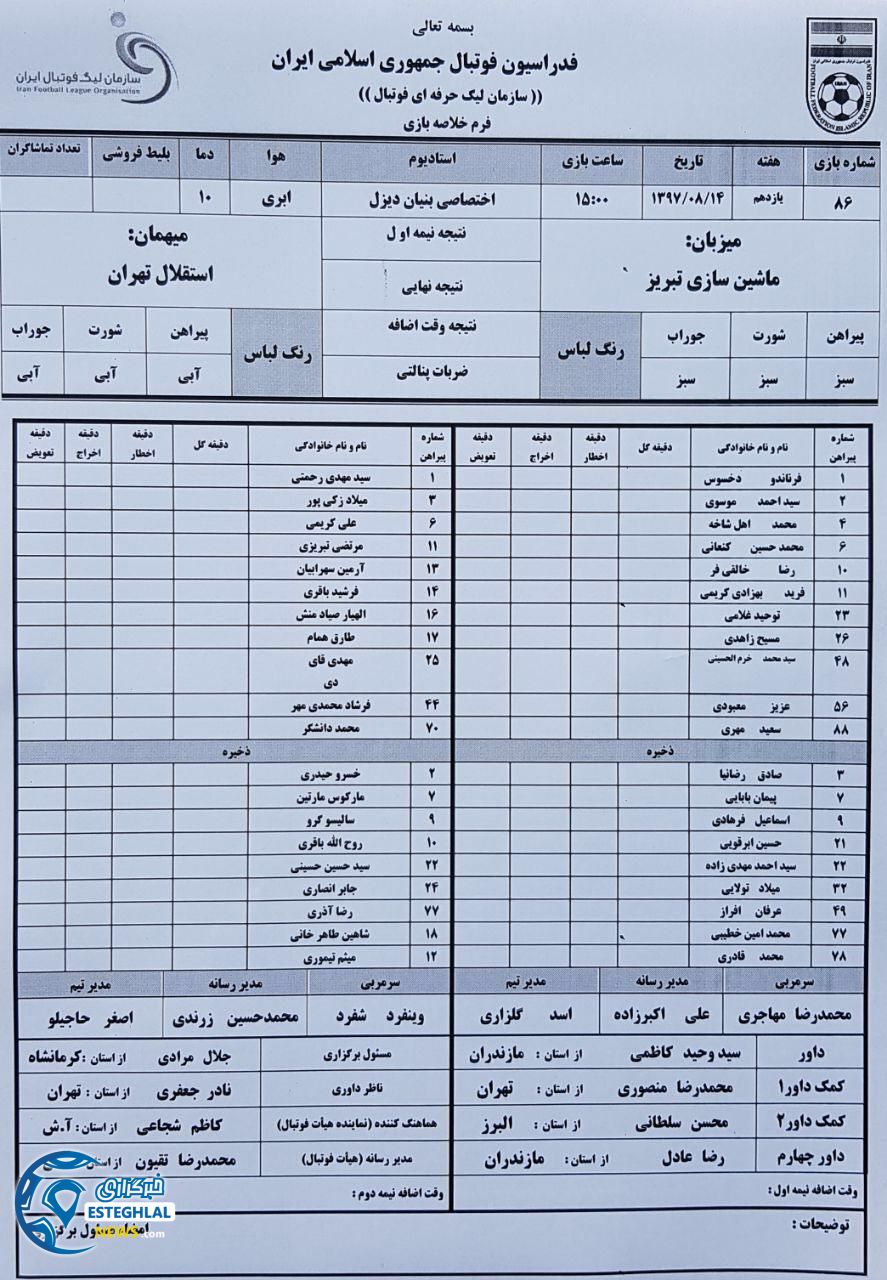 بسمه تعالی
فدراسیون فوتبال جمهوری اسلامی ایران
(( سازمان لیگ حرفه ای فوتبال ))
فرم خلاصه بازی
FOOTBALL FEDERATION ISLAMIC REPUBLIC OF IRAN
IRAN
سازمان لیگ فوتبال ایران
Iran Football League Organisation
شماره بازی هفته تاریخ ساعت بازی استادیوم هوا دما بلیط فروشی تعداد تماشاگران
۸۶ یازدهم ۱۳۹۷/۰۸/۱۴ ۱۵:۰۰ اختصاصی بنیان دیزل ابری ۱۰
میزبان: نتیجه نیمه اول میهمان:
ماشین سازی تبریز نتیجه نهایی استقلال تهران
پیراهن شورت جوراب رنگ لباس نتیجه وقت اضافه رنگ لباس پیراهن شورت جوراب
سبز سبز سبز ضربات پنالتی آبی آبی آبی
شماره پیراهن نام و نام خانوادگی دقیقه گل دقیقه اخطار دقیقه اخراج دقیقه تعویض شماره پیراهن نام و نام خانوادگی دقیقه گل دقیقه اخطار دقیقه اخراج دقیقه تعویض
۱ فرناندو دخسوس ۱ سید مهدی رحمتی
۲ سید احمد موسوی ۳ میلاد زکی پور
۴ محمد اهل شاخه ۶ علی کریمی
۶ محمد حسین کنعانی ۱۱ مرتضی تبریزی
۱۰ رضا خالقی فر ۱۳ آرمین سهرابیان
۱۱ فرید بهزادی کریمی ۱۴ فرشید باقری
۲۳ توحید غلامی ۱۶ الهیار صیاد منش
۲۶ مسیح زاهدی ۱۷ طارق همام
۴۸ سید محمد خرم الحسینی ۲۵ مهدی قای
دی
۵۶ عزیز معبودی ۴۴ فرشاد محمدی مهر
۸۸ سعید مهری ۷۰ محمد دانشگر
ذخیره ذخیره
۳ صادق رضانیا ۲ خسرو حیدری
۷ پیمان بابایی ۷ مارکوس مارتین
۹ اسماعیل فرهادی ۹ سالیسو کرو
۲۱ حسین ابرقویی ۱۰ روح الله باقری
۲۲ سید احمد مهدی زاده ۲۲ سید حسین حسینی
۳۲ میلاد تولایی ۲۴ جابر انصاری
۴۹ عرفان افراز ۷۷ رضا آذری
۷۷ محمد امین خطیبی ۱۸ شاهین طاهر خانی
۷۸ محمد قادری ۱۲ میثم تیموری
سرمربی مدیر رسانه مدیر تیم سرمربی مدیر رسانه مدیر تیم
محمدرضا مهاجری علی اکبرزاده اسد گلزاری وینفرد شفرد محمدحسین زرندی اصغر حاجیلو
داور سید وحید کاظمی از استان : مازندران مسئول برگزاری جلال مرادی از استان : کرمانشاه
کمک داور۱ محمدرضا منصوری از استان : تهران ناظر داوری نادر جعفری از استان : تهران
کمک داور۲ محسن سلطانی از استان : البرز هماهنگ کننده (نماینده هیأت فوتبال) کاظم شجاعی از استان : آ.ش
داور چهارم رضا عادل از استان : مازندران مدیر رسانه (هیأت فوتبال) محمدرضا تقیون از استان
وقت اضافه نیمه اول: وقت اضافه نیمه دوم:
توضیحات :
خبرگزاری
ESTEGHLAL
NEWS.com